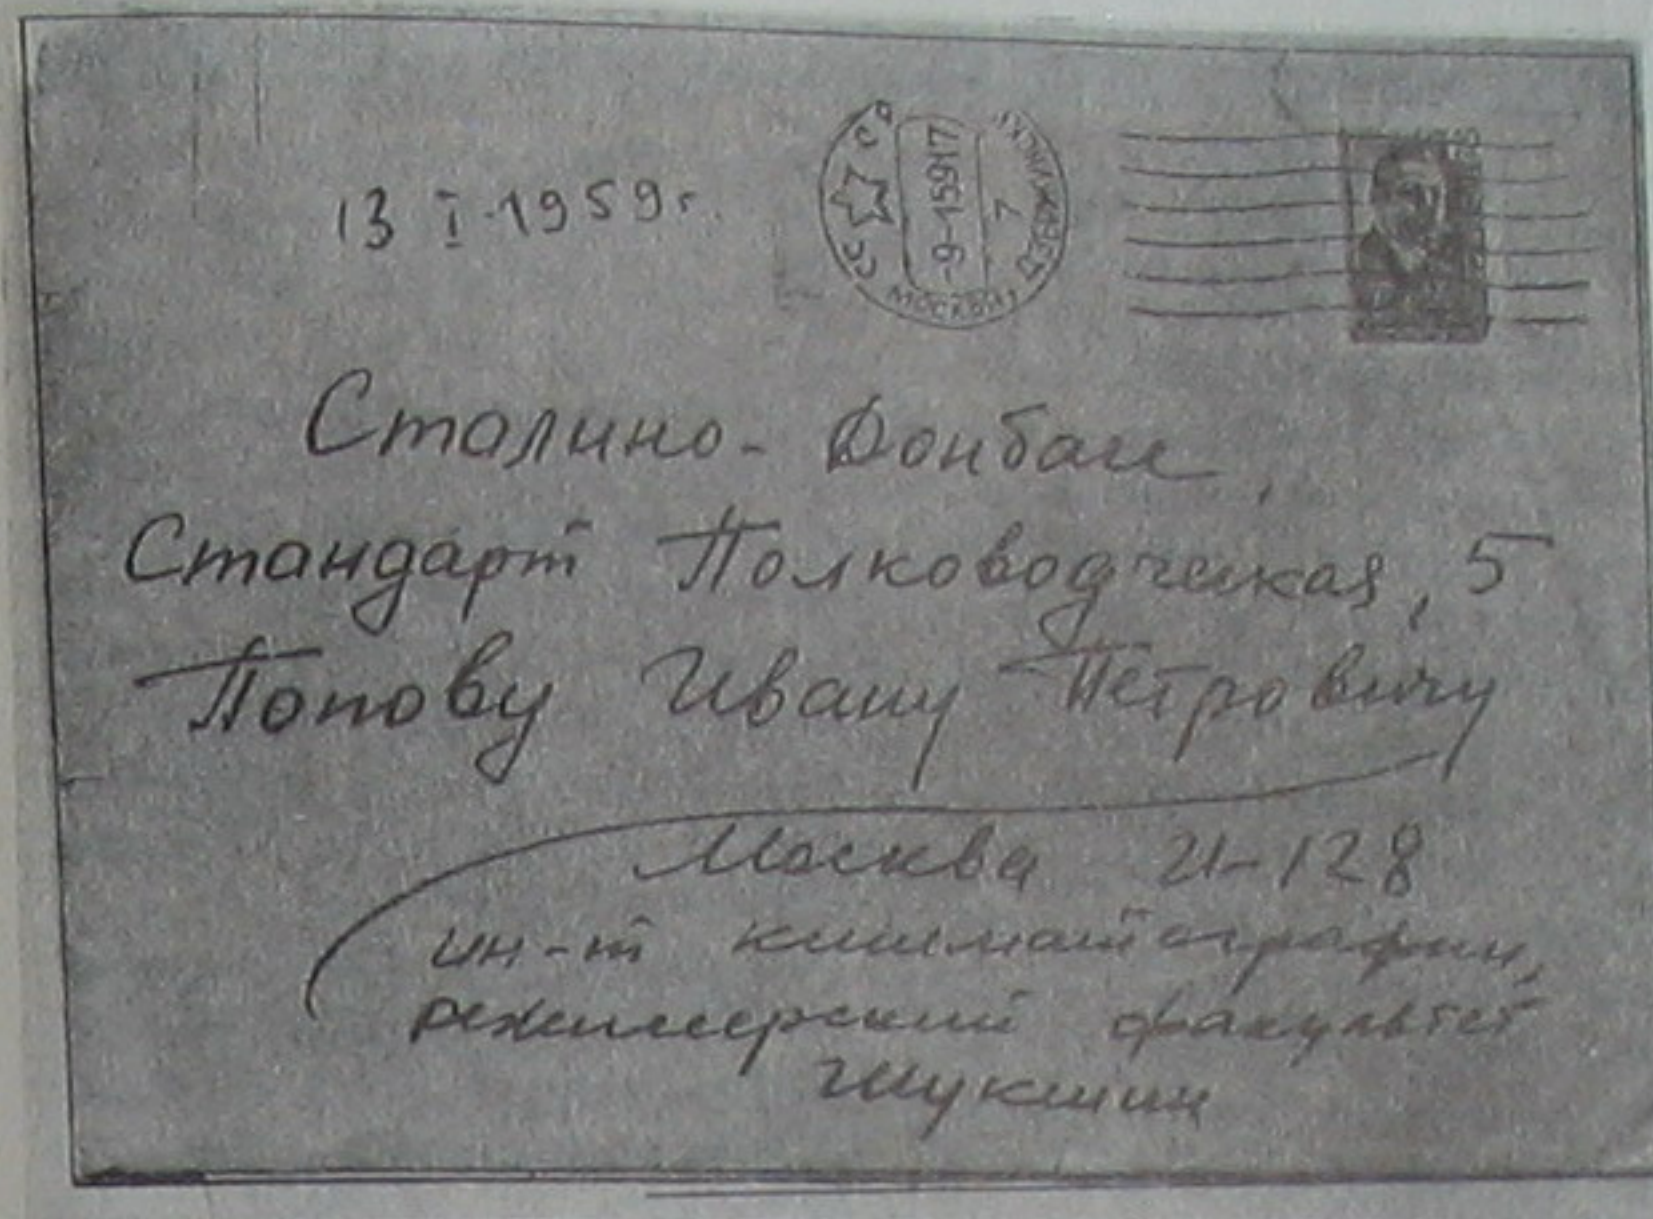 13 I-1959г.
СССР
МОСКВА,
-9-15917
7
Сталино-Донбасс,
Стандарт Полководческая, 5
Попову Ивану Петровичу
Москва И-128
ин-т кинематографии,
режиссерский факультет
Шукшин